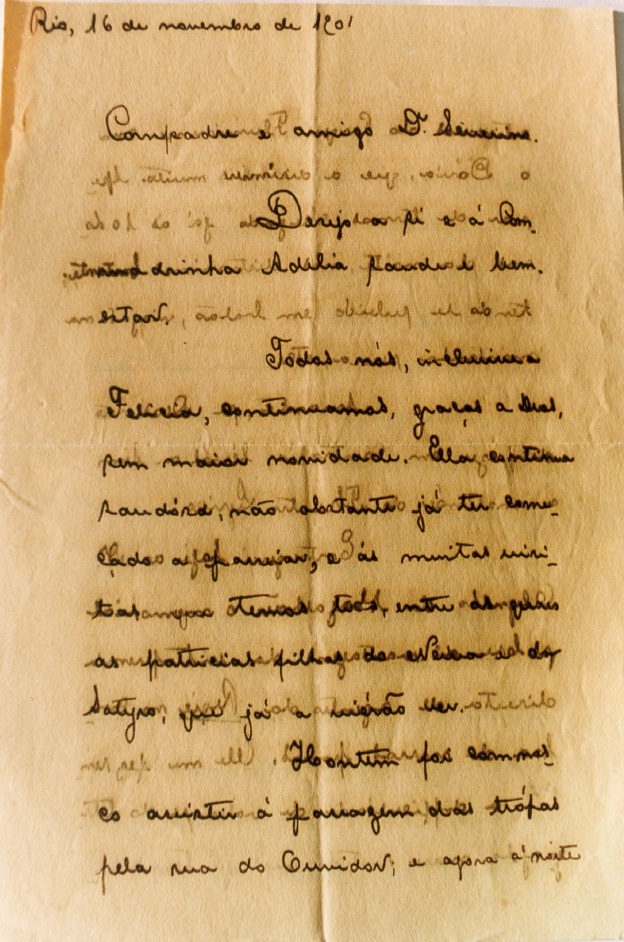 Rio, 16 de novembro de 1901
Compadre e amigo Dr. Severino.
Desejo a si e á Com-
drinha Adelia saude e bem
estar.
Todos nós, inclusive a
Felicia, continuamos, graças a Deus,
sem maior novidade. Ella continua
saudósa, não obstante já ter come-
çado a passeiar, e ás muitas visi-
tas que temos tido, entre
as patricias filhas do Vieira e do
Satyro, que já a vierão ver.
Hontem foi comnos-
co assistir á passagem das trópas
pela rua do Ouvidor; e agora á noite